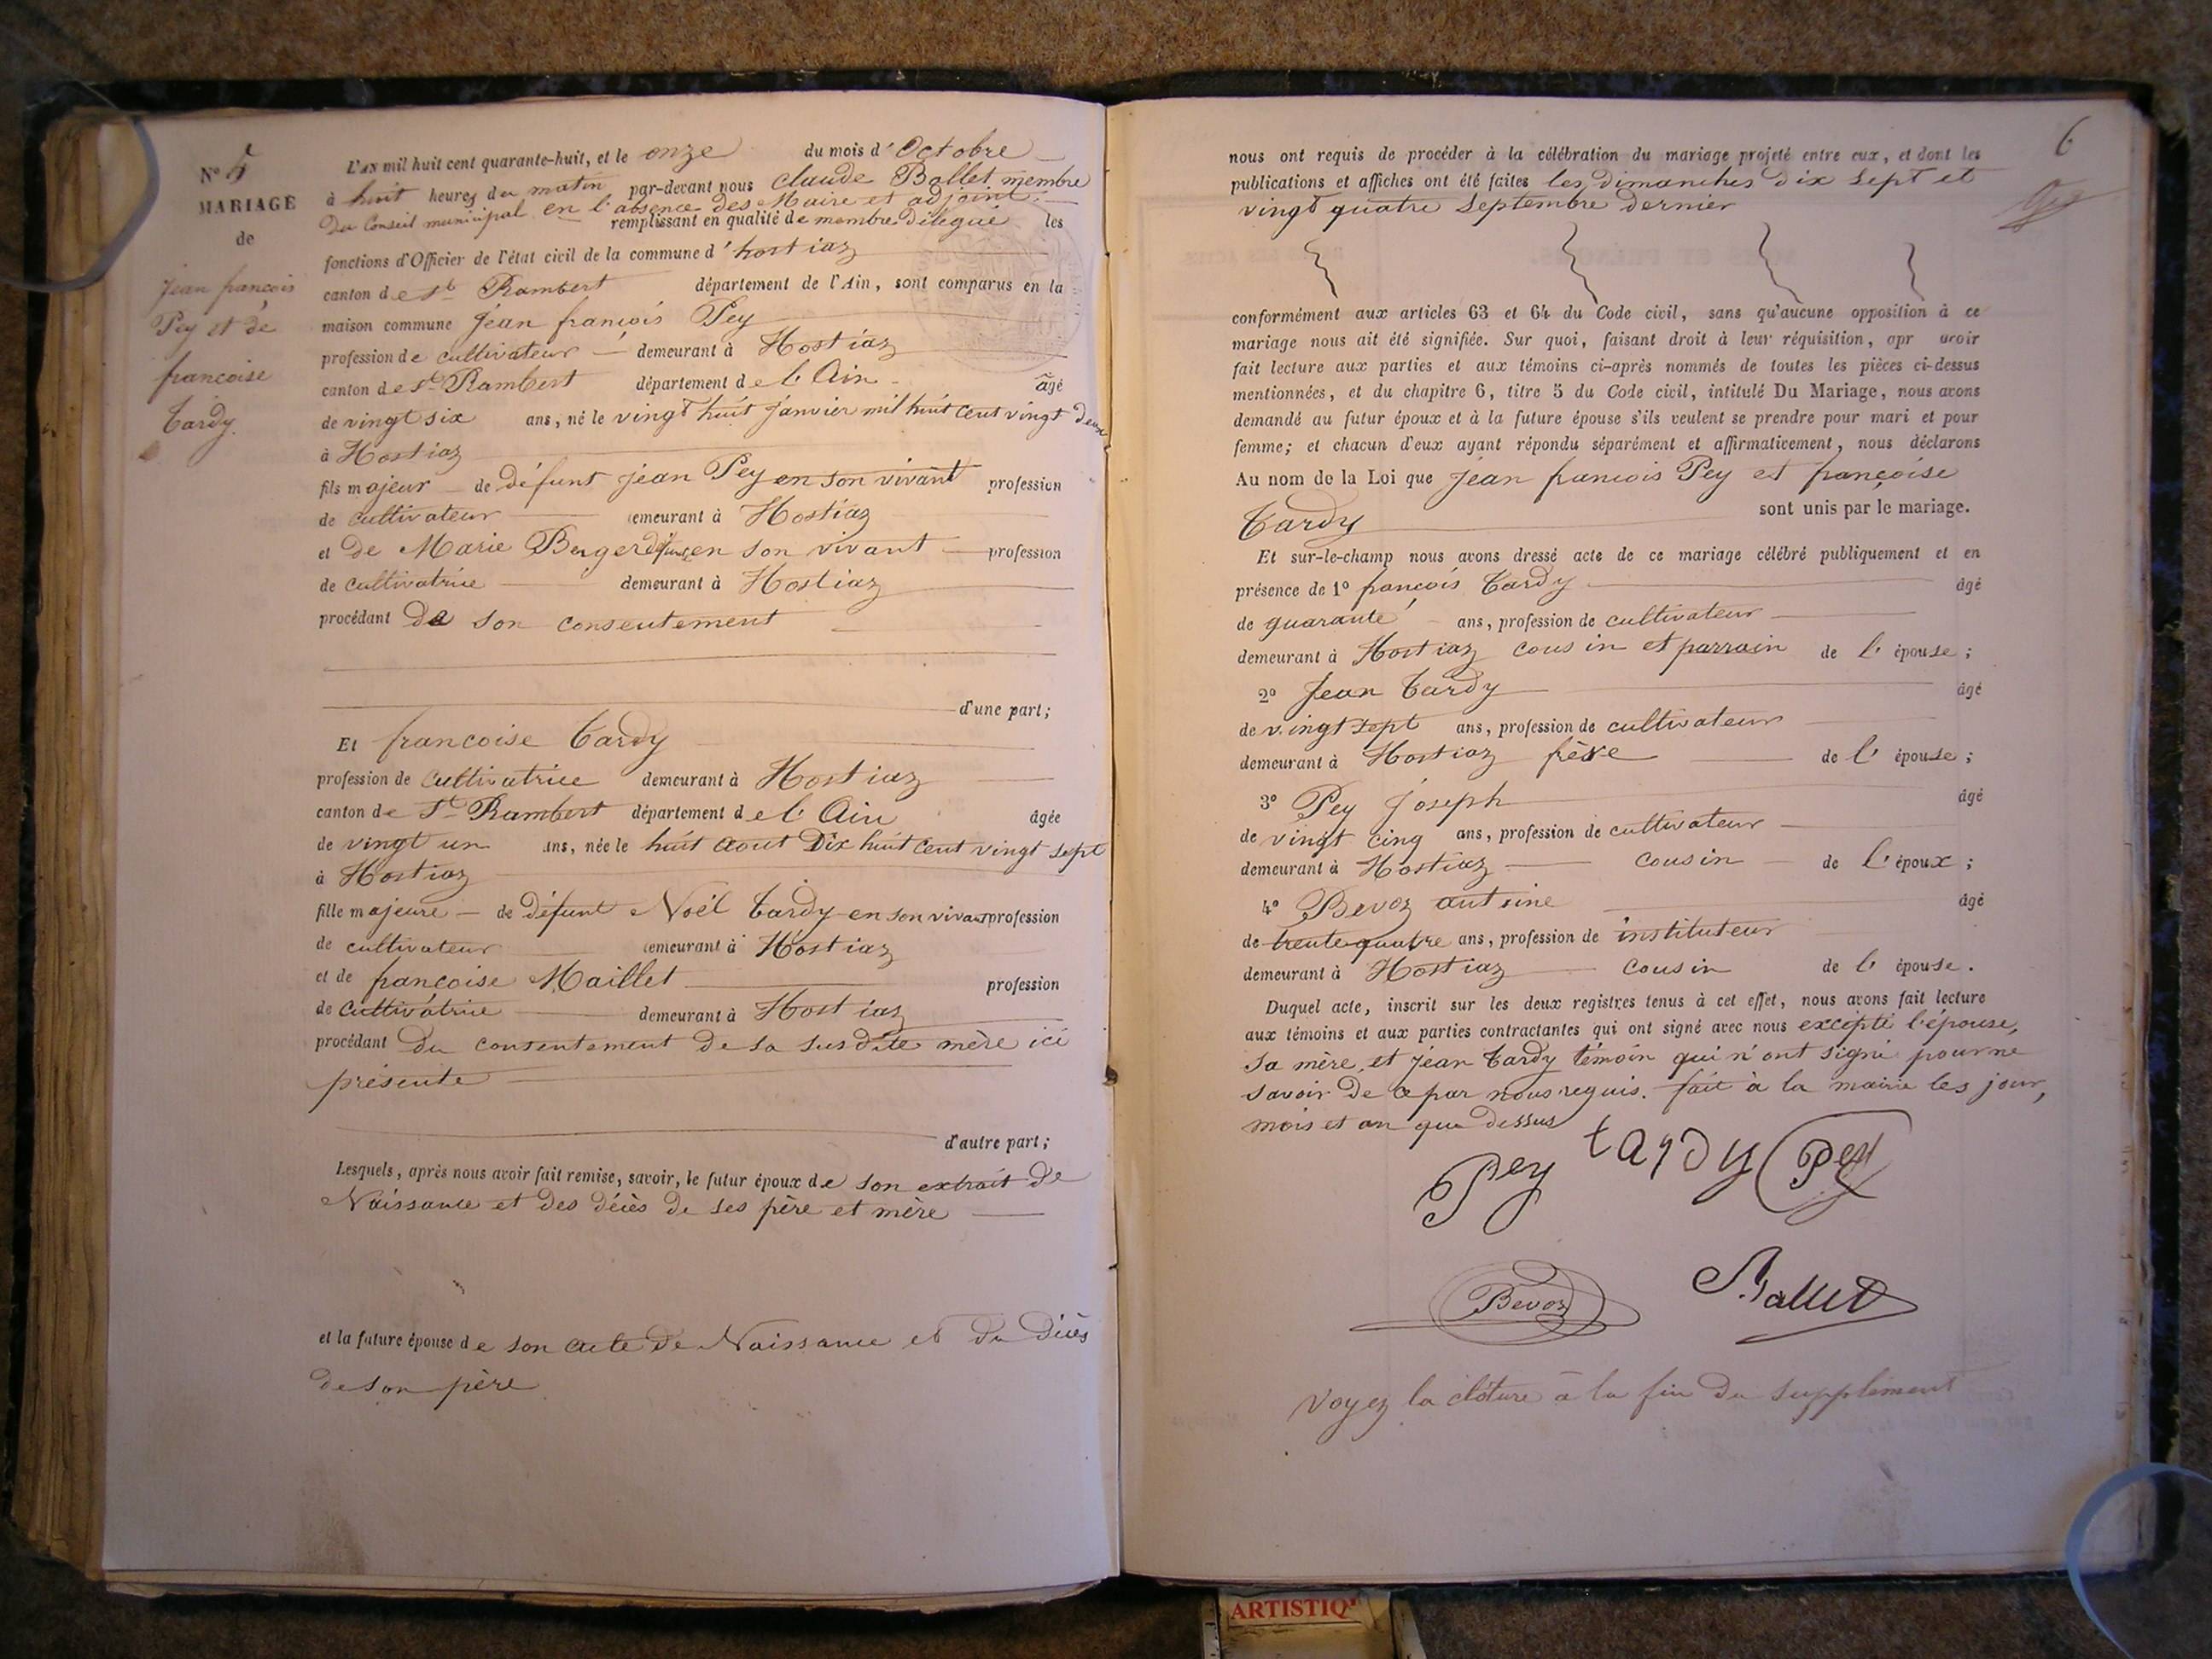 N° 5
MARIAGE
de
Jean françois
Pey et de
françoise
Tardy.
L'AN mil huit cent quarante-huit, et le onze du mois d'Octobre
à huit heures du matin par-devant nous Claude Ballet membre
du Conseil municipal en l'absence des Maire et adjoint.
remplissant en qualité de membre délégué les
fonctions d'Officier de l'état civil de la commune d'hostiaz
canton de St Rambert département de l'Ain, sont comparus en la
maison commune Jean françois Pey
profession de cultivateur demeurant à Hostiaz
canton de St Rambert département de l'Ain âgé
de vingt six ans, né le vingt huit Janvier mil huit cent vingt deux
à Hostiaz
fils majeur de défunt Jean Pey en son vivant profession
de cultivateur demeurant à Hostiaz
et de Marie Berger défunte en son vivant profession
de cultivatrice demeurant à Hostiaz
procédant de son consentement
d'une part;
Et francoise Tardy
profession de cultivatrice demeurant à Hostiaz
canton de St Rambert département de l'Ain âgée
de vingt un ans, née le huit aout Dix huit cent vingt sept
à Hostiaz
fille majeure de défunt Noël Tardy en son vivant profession
de cultivateur demeurant à Hostiaz
et de françoise Maillet profession
de cultivatrice demeurant à Hostiaz
procédant du consentement de sa susdite mère ici
présente
d'autre part;
Lesquels, après nous avoir fait remise, savoir, le futur époux de son extrait de
Naissance et des décès de ses père et mère
et la future épouse de son acte de Naissance et du décès
de son père
6
nous ont requis de procéder à la célébration du mariage projeté entre eux, et dont les
publications et affiches ont été faites les dimanches dix sept et
vingt quatre septembre dernier
conformément aux articles 63 et 64 du Code civil, sans qu'aucune opposition à ce
mariage nous ait été signifiée. Sur quoi, faisant droit à leur réquisition, apr avoir
fait lecture aux parties et aux témoins ci-après nommés de toutes les pièces ci-dessus
mentionnées, et du chapitre 6, titre 5 du Code civil, intitulé Du Mariage, nous avons
demandé au futur époux et à la future épouse s'ils veulent se prendre pour mari et pour
femme; et chacun d'eux ayant répondu séparément et affirmativement, nous déclarons
Au nom de la Loi que Jean francois Pey et françoise
Tardy sont unis par le mariage.
Et sur-le-champ nous avons dressé acte de ce mariage célébré publiquement et en
présence de 1° françois Tardy âgé
de quarante ans, profession de cultivateur
demeurant à Hostiaz cousin et parrain de l'épouse;
2° Jean Tardy âgé
de vingt sept ans, profession de cultivateur
demeurant à Hostiaz frère de l'épouse;
3° Pey Joseph âgé
de vingt cinq ans, profession de cultivateur
demeurant à Hostiaz cousin de l'époux;
4° Bevoz antoine âgé
de trente quatre ans, profession de instituteur
demeurant à Hostiaz cousin de l'épouse.
Duquel acte, inscrit sur les deux registres tenus à cet effet, nous avons fait lecture
aux témoins et aux parties contractantes qui ont signé avec nous excepté l'épouse,
sa mère, et Jean Tardy témoin qui n'ont signé pour ne
savoir de ce par nous requis. fait à la mairie les jour,
mois et an que dessus
Pey tardy Pey
Bevoz Ballet
Voyez la clôture à la fin du supplément
ARTISTIQ